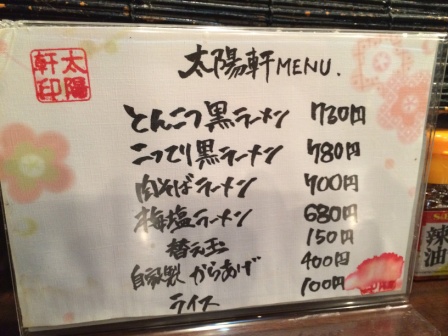 太陽軒印
太陽軒MENU.
とんこつ黒ラーメン 730円
こってり黒ラーメン 780円
肉そばラーメン 700円
梅塩ラーメン 680円
替え玉 150円
自家製からあげ 400円
ライス 100円
辣油